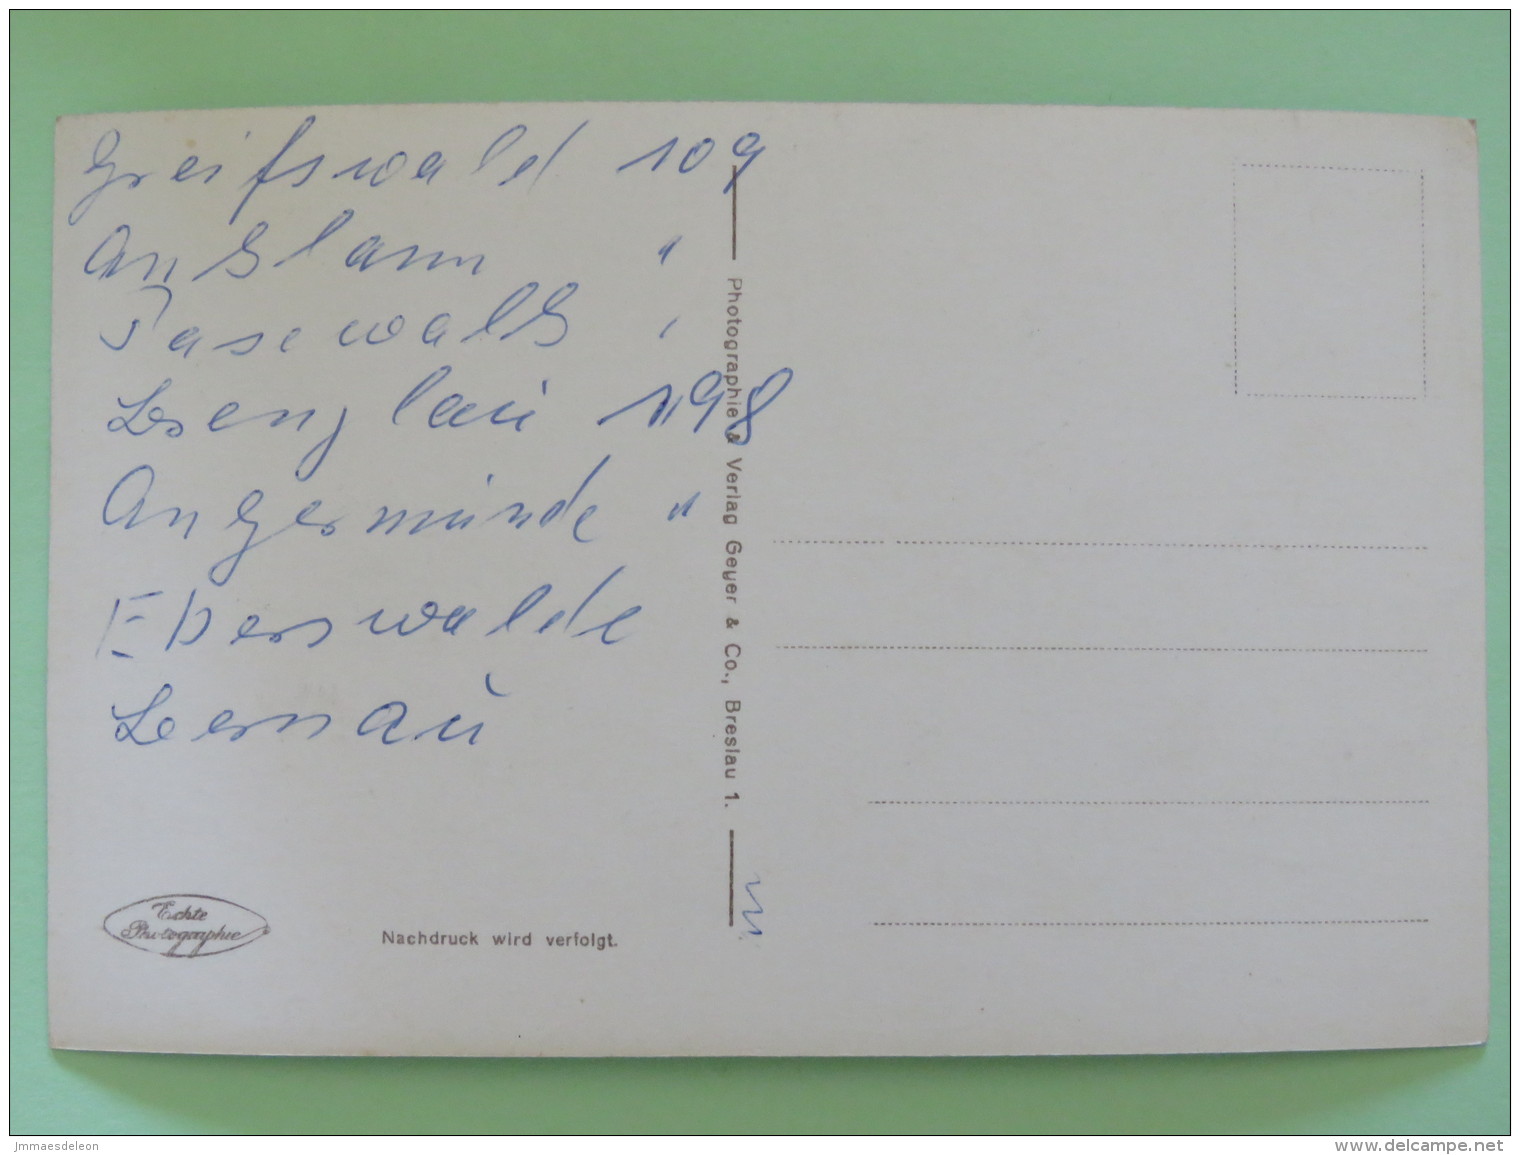 Greifswald 109
Anklam "
Pasewalk "
Prenzlau 198
Angermünde "
Eberswalde
Bernau
Photographie & Verlag Geyer & Co., Breslau 1.
Echte
Photographie
Nachdruck wird verfolgt.
jmmaesdeleon
www.delcampe.net